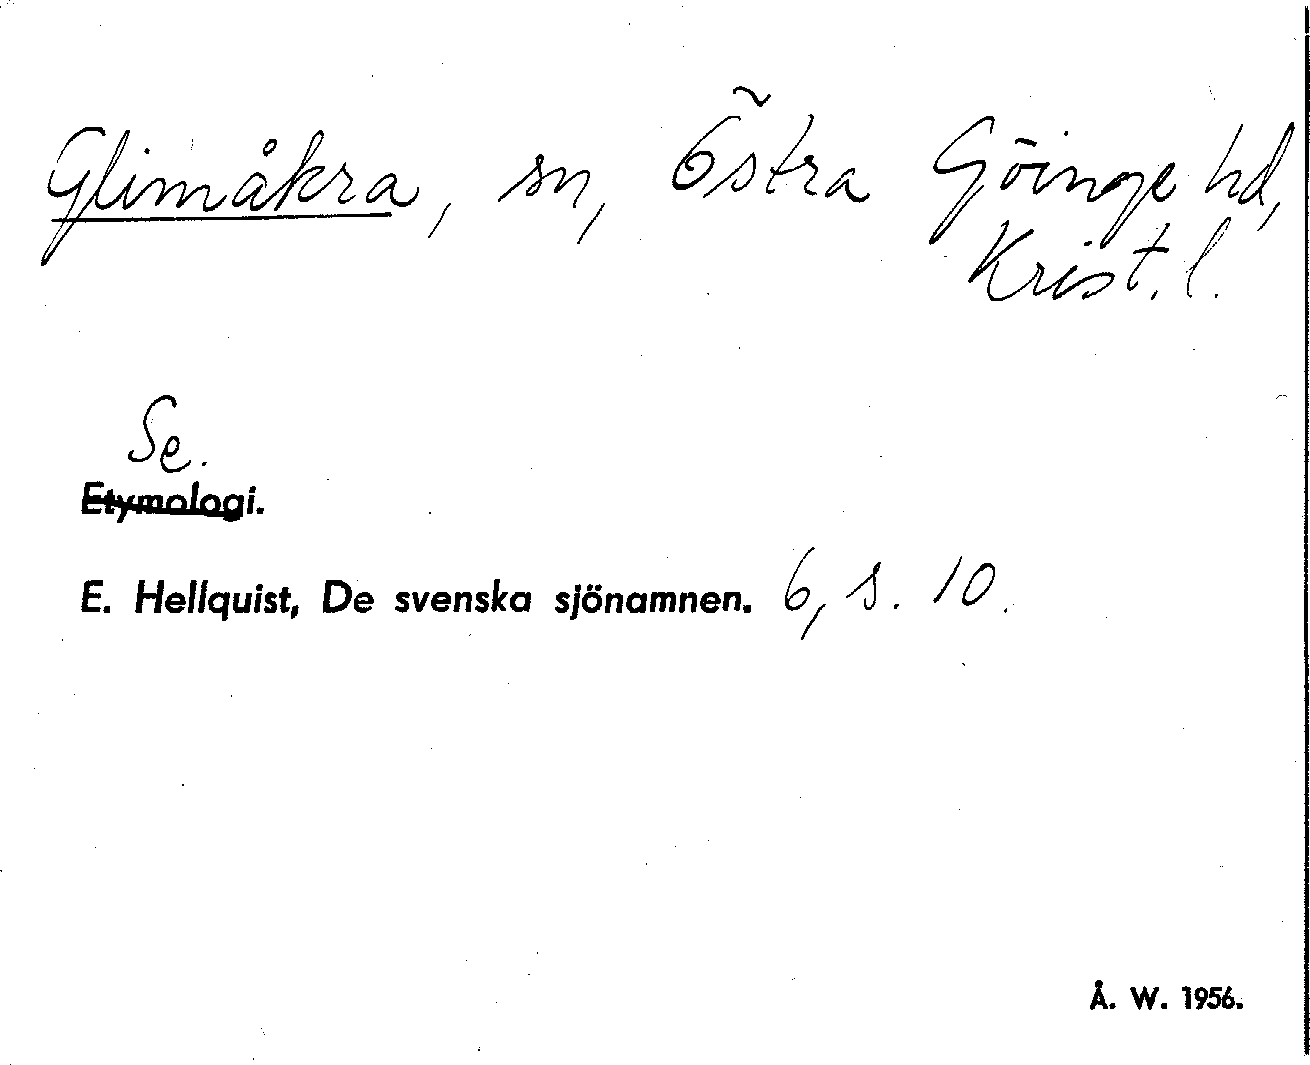 Glimåkra, sn, Östra Göinge hd,
Krist. l.
Se.
Etymologi.
E. Hellquist, De svenska sjönamnen. 6, s. 10.
Å. W. 1956.